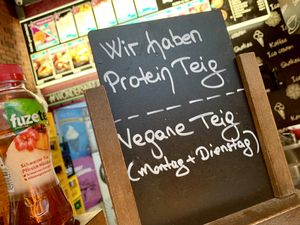 Wir haben
Protein Teig
Vegane Teig
(Montag + Dienstag)
fuze